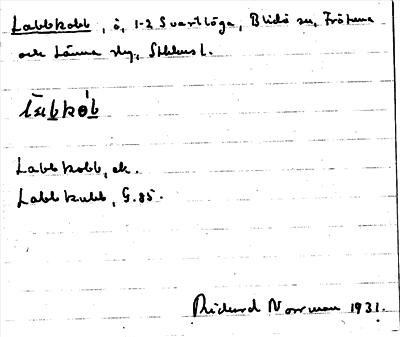 Labbkobb, ö, 1-2 Svartlöga, Blidö sn, Frötuna
och Länna skg, Sthlms l.
Labbkobb, ek.
Labbkubb, G. 85.
Rickard Norrman 1931.